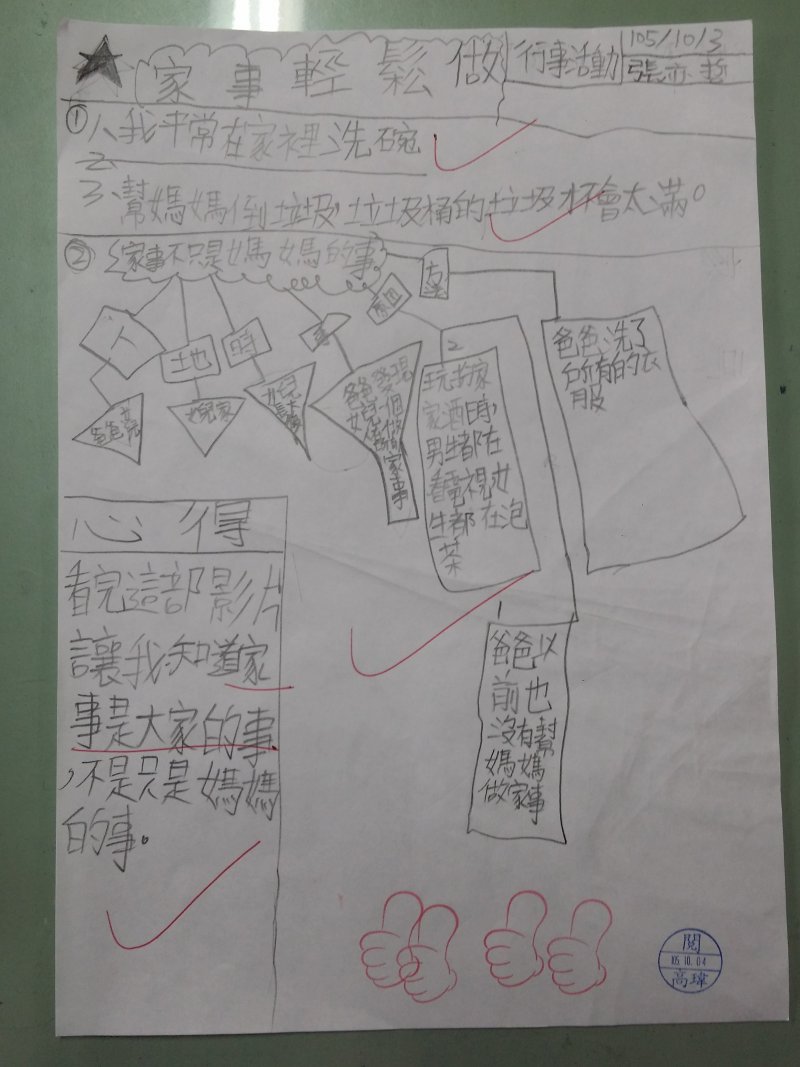 家事輕鬆做
行事活動
105/10/3
張亦哲
① 1、我平常在家裡洗碗
2、
3、幫媽媽倒垃圾,垃圾桶的垃圾才不會太滿。
② 家事不只是媽媽的事
人
地
時
事
原因
方法
爸爸 女兒
女兒家
爸爸發現
女兒一個
人做
家事
2
玩扮家
家酒時,
男生都在
看電視女
生都在泡
茶
爸爸洗了
所有的衣
服
1
爸爸以
前也
沒有幫
媽媽
做家事
心得
看完這部影片
讓我知道家
事是大家的事
,不是只是媽媽
的事。
閱
105.10.04
高瑋